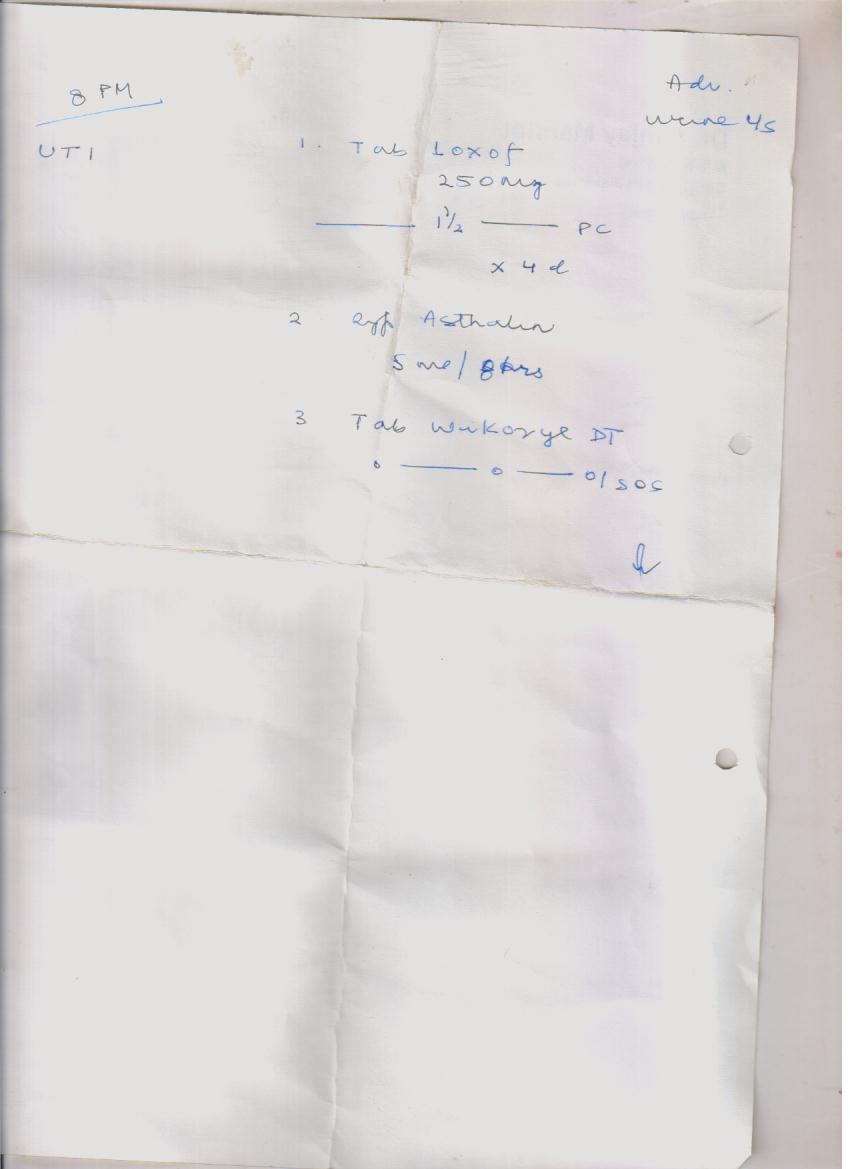 8 PM
Adv.
Urine 4s
UTI
1. Tab Loxof
250 mg
1 1/2 PC
x 4 d
2 Syp Asthalin
5 ml / 8 hrs
3 Tab Wikoryl DT
0 0 0/ SOS